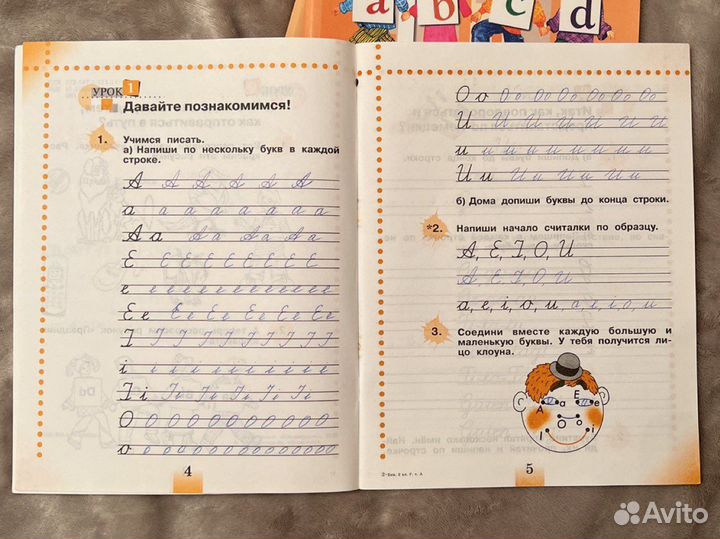 a b c d
УРОК 1
Давайте познакомимся!
1. Учимся писать.
а) Напиши по нескольку букв в каждой
строке.
A A A A A A
a a a a a a a a
A a A a A a A a
E E E E E E E E E
e e e e e e e e e e e e
E e E e E e E e E e E e
I I I I I I I I I I
i i i i i i i i i i
I i I i I i I i I i
O O O O O O O O O O O
o o o o o o o o o o o o o
4
O o O o O o O o O o O o O o
U U U U U U U
u u u u u u u u u
U u U u U u U u
б) Дома допиши буквы до конца строки.
*2. Напиши начало считалки по образцу.
A, E, I, O, U
A, E, I, O, U
a, e, i, o, u a, e, i, o, u
3. Соедини вместе каждую большую и
маленькую буквы. У тебя получится ли-
цо клоуна.
E
A U a u e
O o
I i
5
Avito